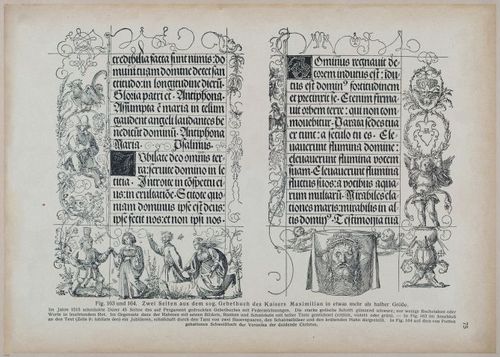 credibilia facta sunt nimis: do
mum tuam domine decet san
ctitudo: in longitudine dierū
Gloria patri et. Antiphona.
Assumpta ē maria in celum
gaudent angeli laudantes be
nedicūt dominū. Antiphona
Maria. Psalmus.
Iubilate deo omnis ter
ra: servite domino in le
titia. Introite in cōspectu ei
us: in exultatiōe. Scitote quo
niam dominus ipse est deus:
ipse fecit nos: et non ipsi nos.
Dominus regnavit de
corem indutus est: idu
tus est domin⁹ fortitudinem
et precinxit se. Etenim firma
vit orbem terre: qui non com
movebitur. Parata sedes tua
ex tunc: a seculo tu es. Ele
vaverunt flumina domine:
elevaverunt flumina vocem
suam. Elevaverunt flumina
fluctus suos: a vocibus aqua
rum multarum. Mirabiles ela
tiones maris: mirabilis in al
tis domin⁹. Testimonia tua
Fig. 163 und 164. Zwei Seiten aus dem sog. Gebetbuch des Kaisers Maximilian in etwas mehr als halber Größe.
Im Jahre 1515 schmückte Dürer 45 Seiten des auf Pergament gedruckten Gebetbuches mit Federzeichnungen. Die starke gotische Schrift glänzend schwarz, nur wenige Buchstaben oder
Worte in leuchtendem Rot. Im Gegensatz dazu der Rahmen mit seinen Bildern, Ranken und Schnörkeln mit zarter Tinte gezeichnet (rötlich, violett oder grün). — In Fig. 163 im Anschluß
an den Text (Zeile 9: Jubilate deo) ein Jubilieren, schalkhaft durch den Tanz von zwei Bauernpaaren, den Schalmeibläser und den krähenden Hahn dargestellt. — Fig. 164 auf dem von Putten
gehaltenen Schweißtuch der Veronika der duldende Christus.
75